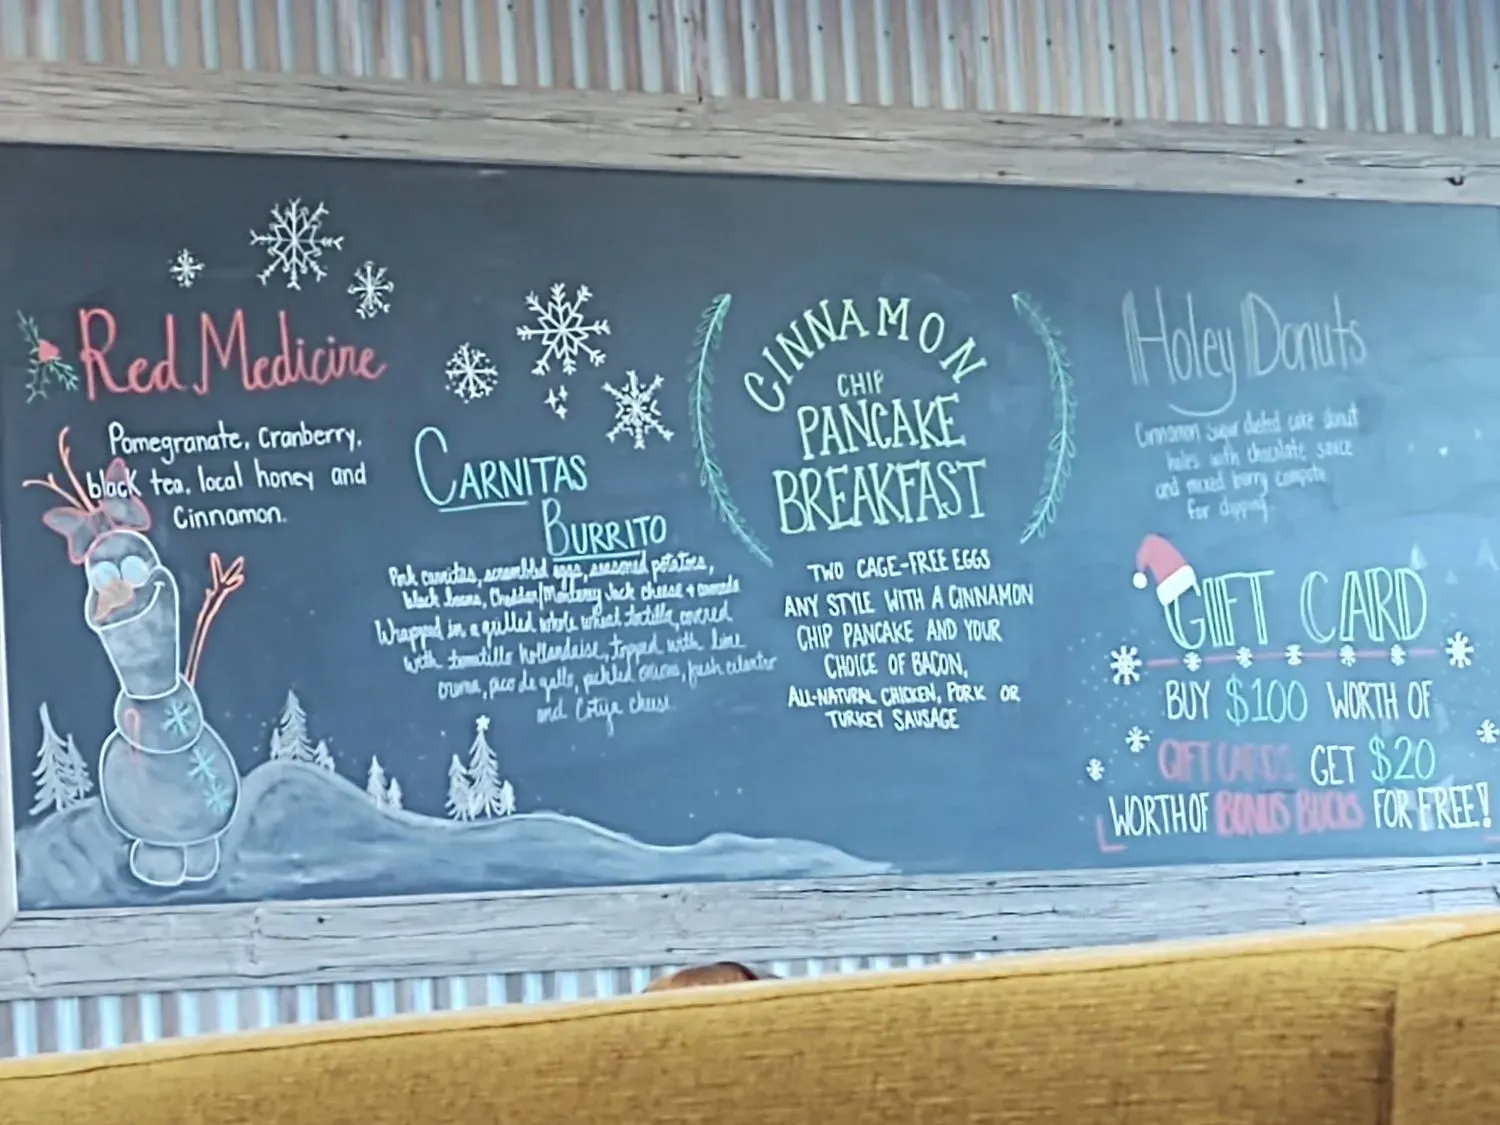 Red Medicine
Pomegranate, Cranberry,
black tea, local honey and
Cinnamon.
CARNITAS
BURRITO
Pork carnitas, scrambled eggs, seasoned potatoes,
black beans, Cheddar/Monterey Jack cheese +
Wrapped in a grilled whole wheat tortilla, covered
with tomatillo hollandaise, topped with lime
crema, pico de gallo, pickled onions, fresh cilantro
and Cotija cheese.
CINNAMON
CHIP
PANCAKE
BREAKFAST
TWO CAGE-FREE EGGS
ANY STYLE WITH A CINNAMON
CHIP PANCAKE AND YOUR
CHOICE OF BACON,
ALL-NATURAL CHICKEN, PORK OR
TURKEY SAUSAGE
Holey Donuts
Cinnamon sugar dusted cake donut
holes with chocolate sauce
and mixed berry compote
for dipping.
GIFT CARD
BUY $100 WORTH OF
GIFT CARDS GET $20
WORTH OF BONUS BUCKS FOR FREE!